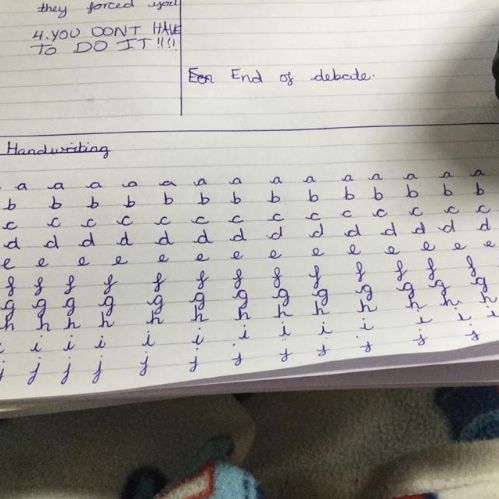 they forced you
4. YOU DONT HAVE
TO DO IT!!!!
End of debate.
Handwriting
a a a a a a a a a a a a a a
b b b b b b b b b b b b b b
c c c c c c c c c c c c c c
d d d d d d d d d d d d d d
e e e e e e e e e e e e e e
f f f f f f f f f f f f f
g g g g g g g g g g g g g
h h h h h h h h h h h h h
i i i i i i i i i i i i
j j j j j j j j j j j